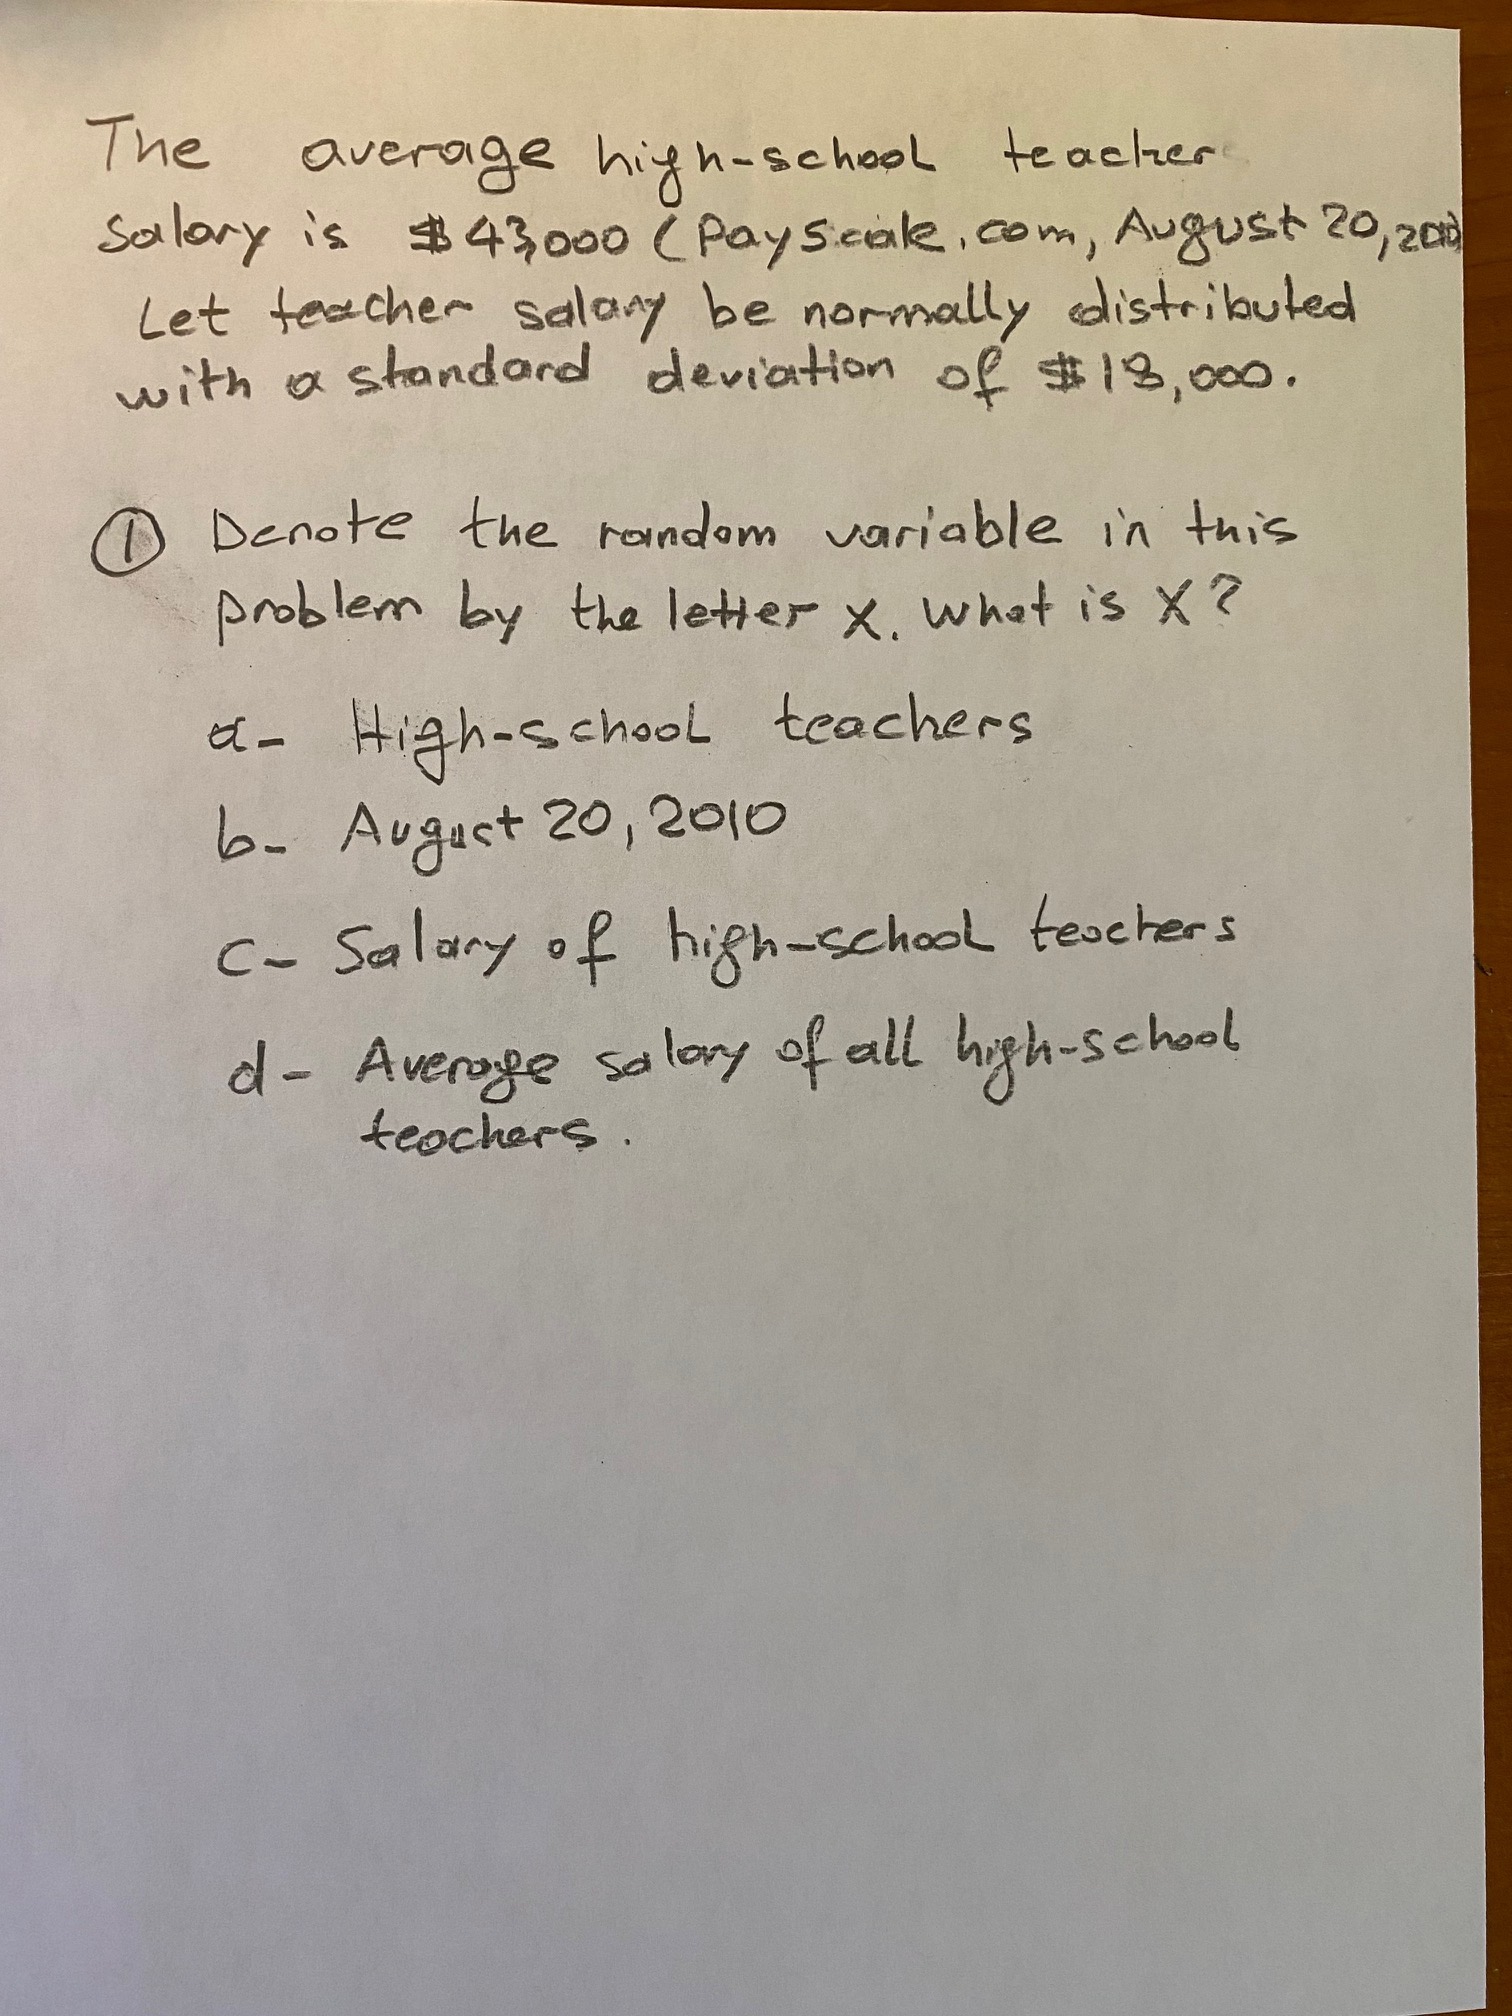 The average high-school teacher
Salary is $43,000 (Payscale.com, August 20, 2010)
Let teacher salary be normally distributed
with a standard deviation of $18,000.
① Denote the random variable in this
problem by the letter X. What is X?
a- High-school teachers
b- August 20, 2010
c- Salary of high-school teachers
d- Average salary of all high-school
teachers.